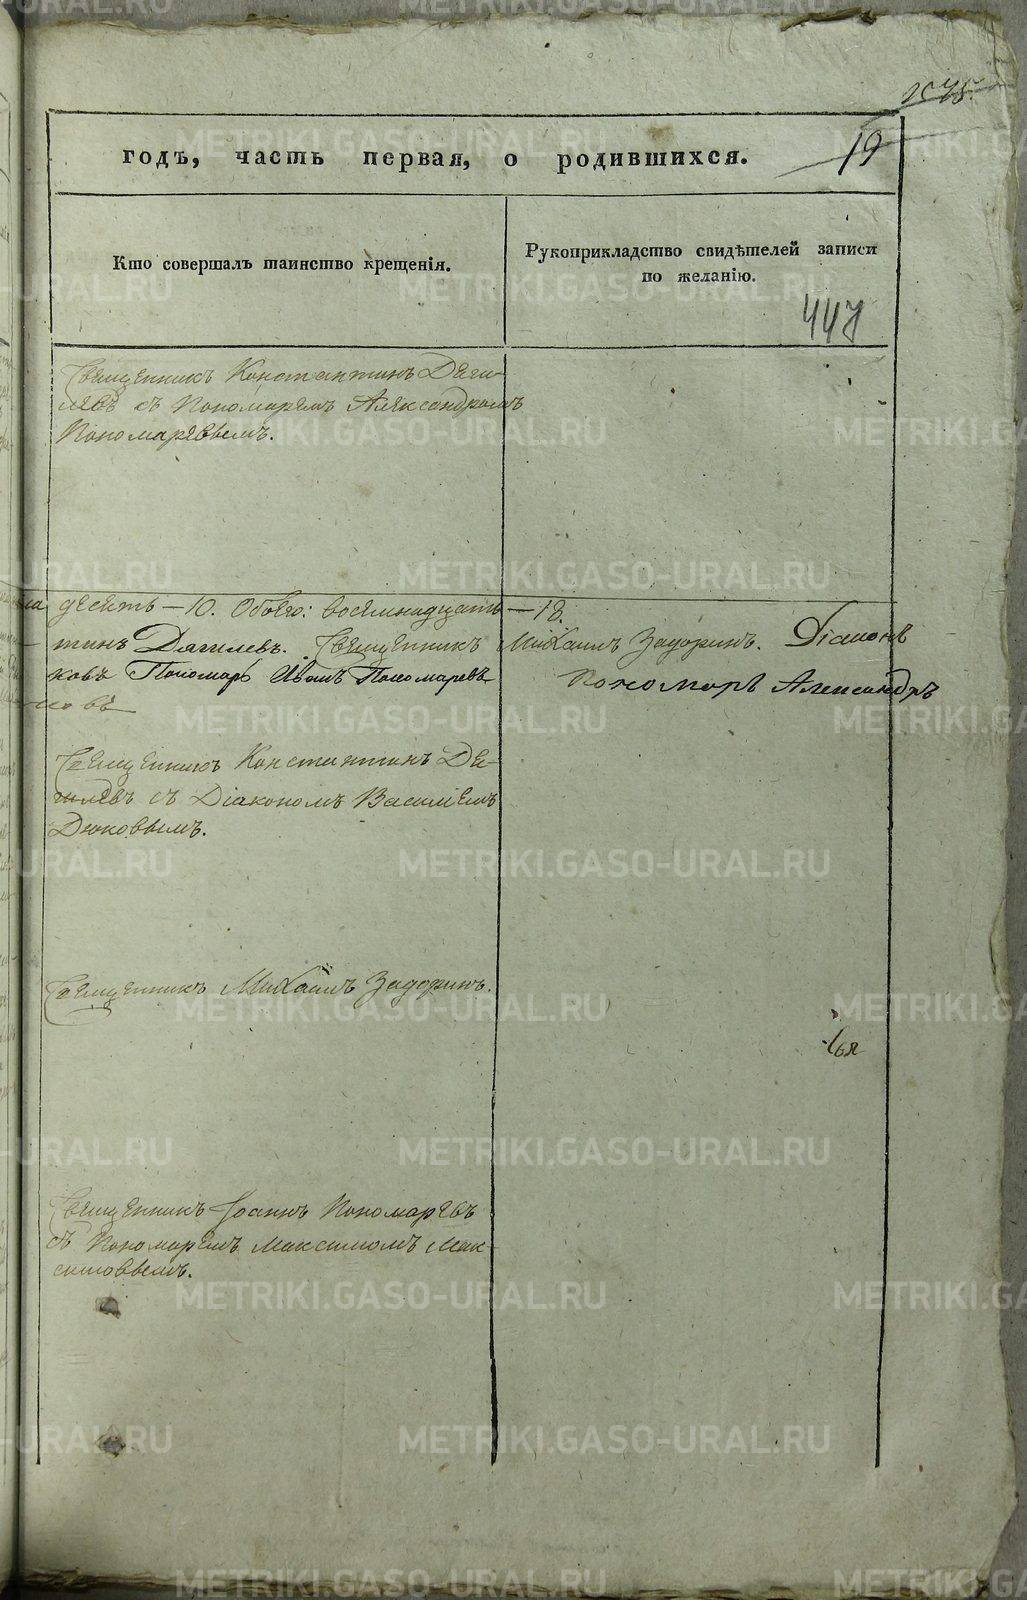 годъ, часть первая, о родившихся.
19
Кто совершалъ таинство крещенія.
Рукоприкладство свидѣтелей записи
по желанію.
447
Священникъ Константинъ Дяги-
левъ съ Пономаремъ Александромъ
Пономаревымъ.
десять — 10. Обоего: восемнадцать — 18.
тинъ Дягилевъ. Священникъ Михаилъ Задоринъ. Діаконъ
ковъ Пономарь Иванъ Пономаревъ Пономарь Александръ
Священникъ Константинъ Дя-
гилевъ съ Діакономъ Василіемъ
Дюковымъ.
Священникъ Михаилъ Задоринъ.
Священникъ Іоаннъ Пономаревъ
съ Пономаремъ Максимомъ Мак-
симовымъ.
METRIKI.GASO-URAL.RU